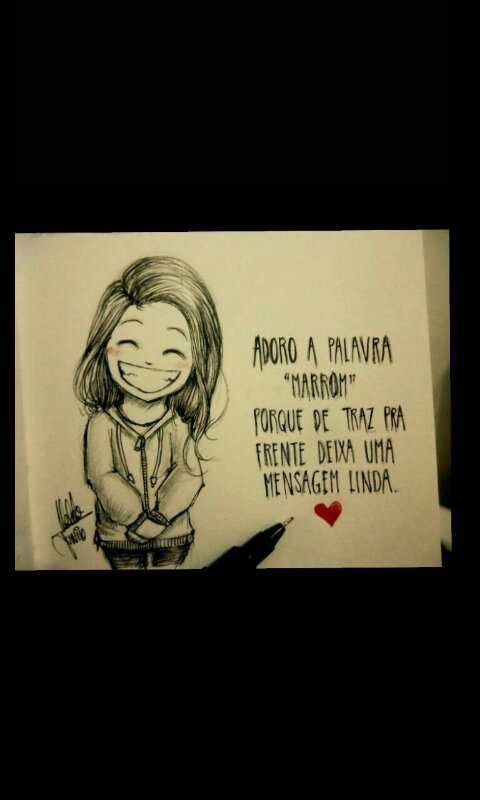 ADORO A PALAVRA
"MARROM"
PORQUE DE TRAZ PRA
FRENTE DEIXA UMA
MENSAGEM LINDA..